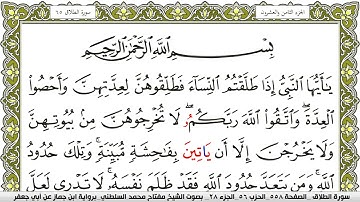 الجزء الثامن والعشرون
سورة الطلاق ٦٥
بِسْمِ اللَّهِ الرَّحْمَٰنِ الرَّحِيمِ
يَٰٓأَيُّهَا النَّبِيُّ إِذَا طَلَّقْتُمُ النِّسَآءَ فَطَلِّقُوهُنَّ لِعِدَّتِهِنَّ وَأَحْصُوا
الْعِدَّةَ وَاتَّقُوا اللَّهَ رَبَّكُمُۥ لَا تُخْرِجُوهُنَّ مِنۢ بُيُوتِهِنَّ
وَلَا يَخْرُجْنَ إِلَّا أَن يَاتِينَ بِفَٰحِشَةٍ مُّبَيِّنَةٍ وَتِلْكَ حُدُودُ
اللَّهِ وَمَن يَتَعَدَّ حُدُودَ اللَّهِ فَقَد ظَّلَمَ نَفْسَهُۥ لَا تَدْرِى لَعَلَّ
سورة الطلاق _ الصفحة ٥٥٨ _ الحزب ٥٦ _ الجزء ٢٨ _ بصوت الشيخ مفتاح محمد السلطني _ برواية ابن جماز عن أبي جعفر